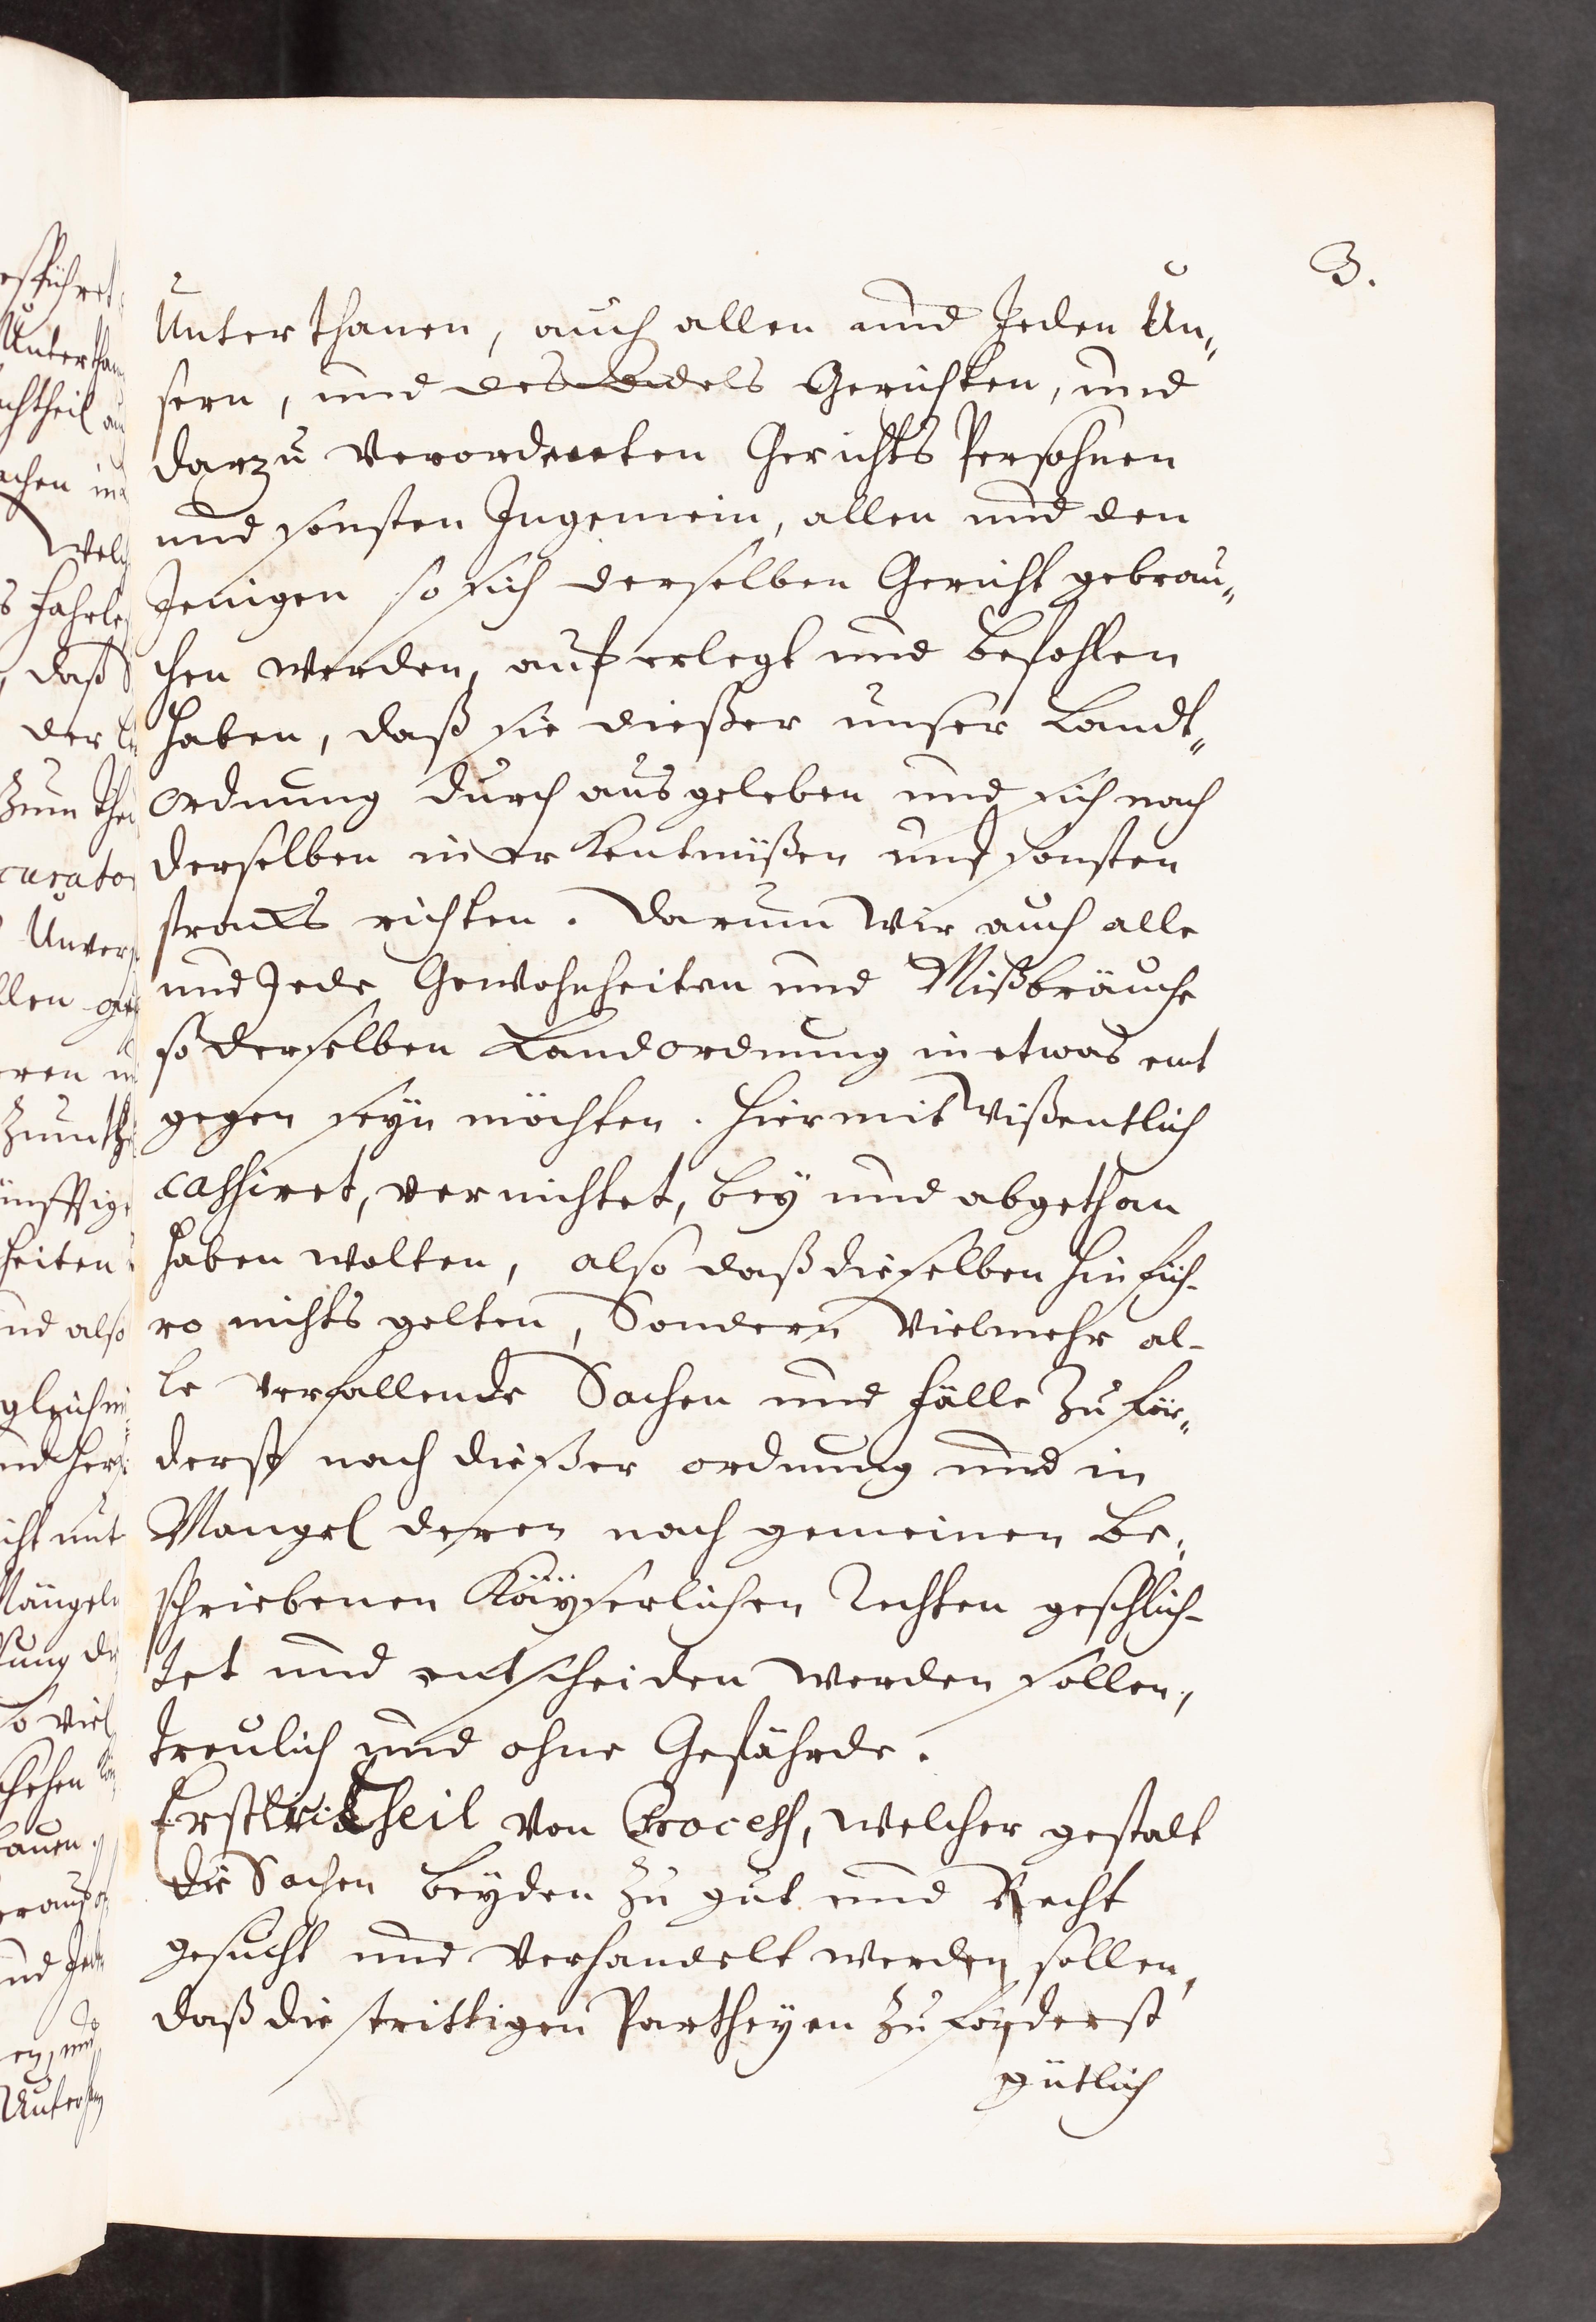 3.
Unterthanen, auch allen und Jeden Un„
sern, und des Adels Gerichten, und
darzu verordneten Gerichts Persohnen
und sonsten Ingemein, allen und den
Jenigen so sich derselben Gericht gebrau„
chen werden, auferlegt und befohlen
haben, daß sie dießer unser Landt„
ordnung durch aus geleben und sich nach
derselben in erkentnüßen und sonsten
stracks richten. Darum wir auch alle
und Jede Gewohnheiten und Mißbräuche
so derselben Landordnung in etwas ent
gegen seyn möchten. hiermit wißentlich
cassiret, vernichtet, bey und abgethan
haben wolten, also daß dieselben hinfüh-
ro nichts gelten, Sondern vielmehr al-
le verfallende Sachen und fälle zu för„
derst nach dießer ordnung und in
Mangel deren nach gemeinen Be„
schriebenen Käyserlichen Rechten geschlich-
tet und entscheiden werden sollen,
treulich und ohne Gefährde.
Erster Theil von Process, welcher gestalt
die Sachen beyden zu gut und Recht
gesucht und verhandelt werden sollen,
daß die strittigen Partheyen zu förderst
gütlich